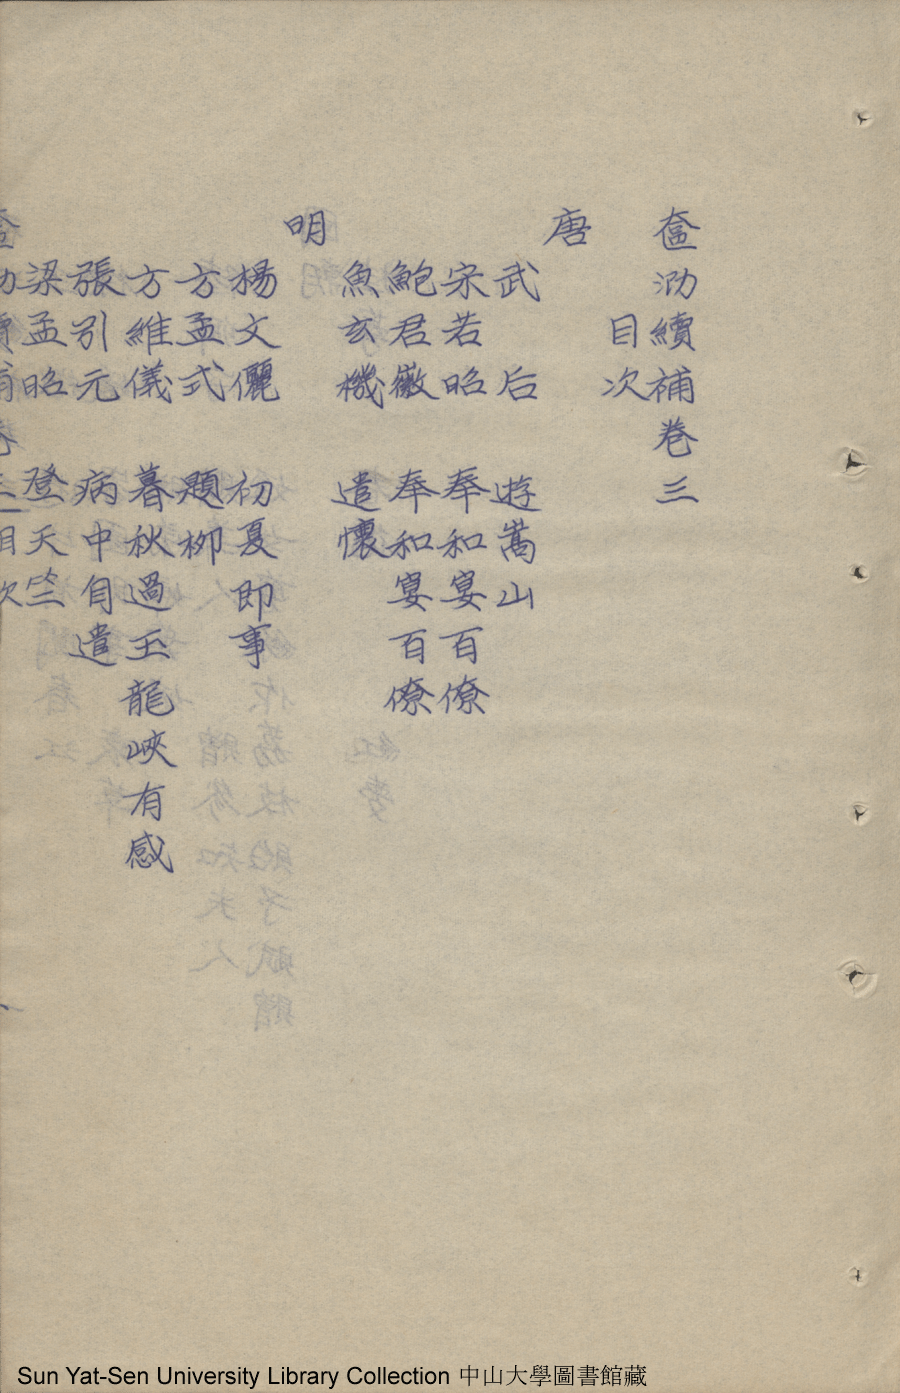 奩泐續補卷三
目次
唐
武后 遊嵩山
宋若昭 奉和宴百僚
鮑君徽 奉和宴百僚
魚玄機 遣懷
明
楊文儷 初夏即事
方孟式 題柳
方維儀 暮秋過玉龍峽有感
張引元 病中自遣
梁孟昭 登天竺
Sun Yat-Sen University Library Collection 中山大學圖書館藏